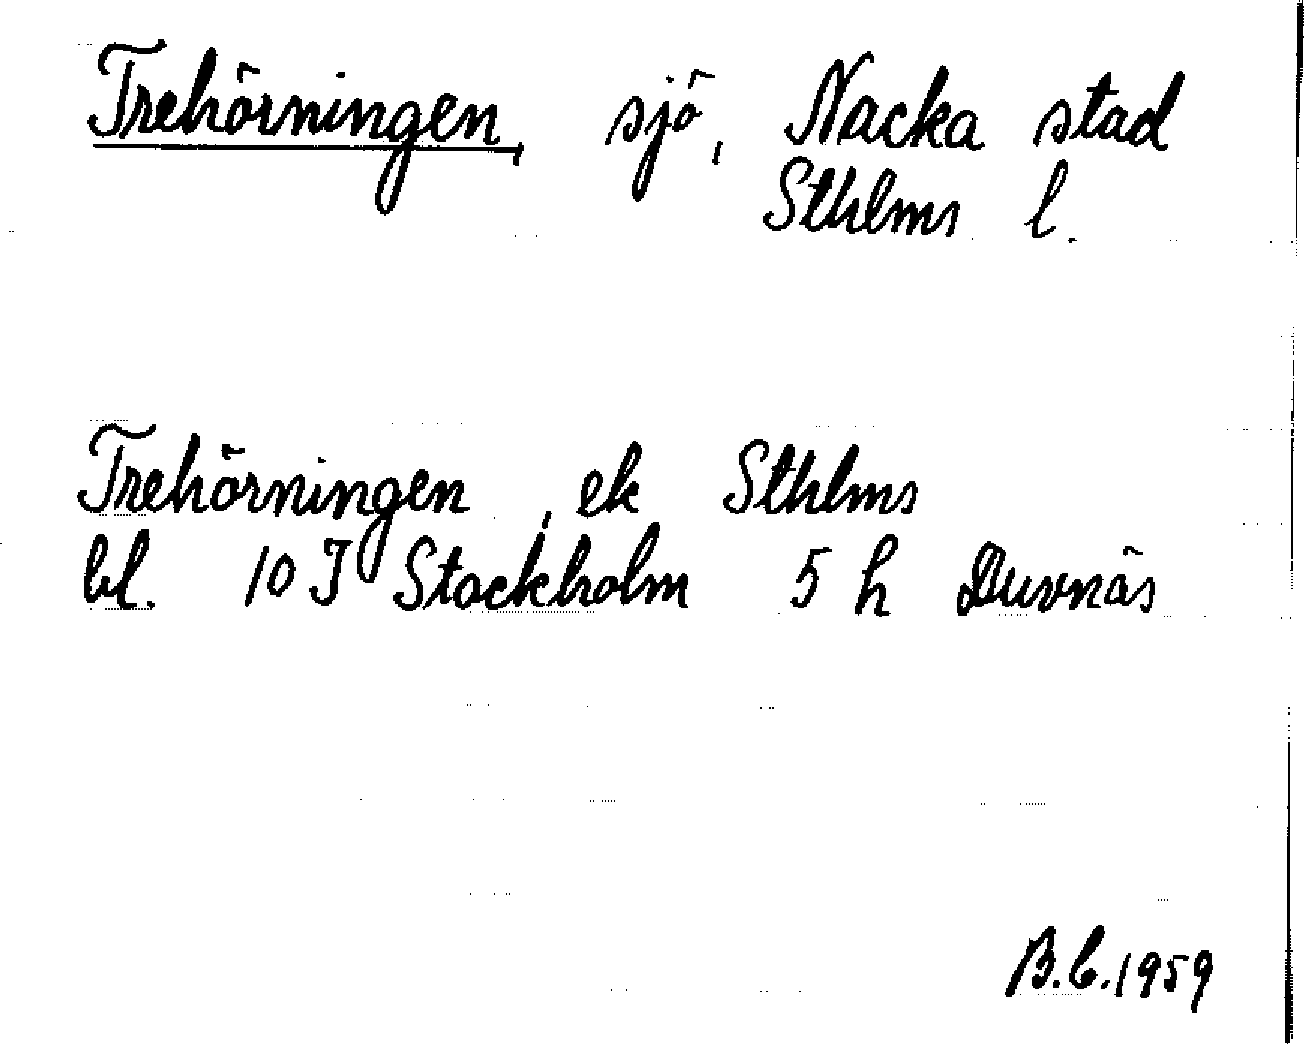 Trehörningen, sjö, Nacka stad
Sthlms l.
Trehörningen, ek Sthlms
bl. 10 I Stockholm 5 h Duvnäs
B.C. 1959